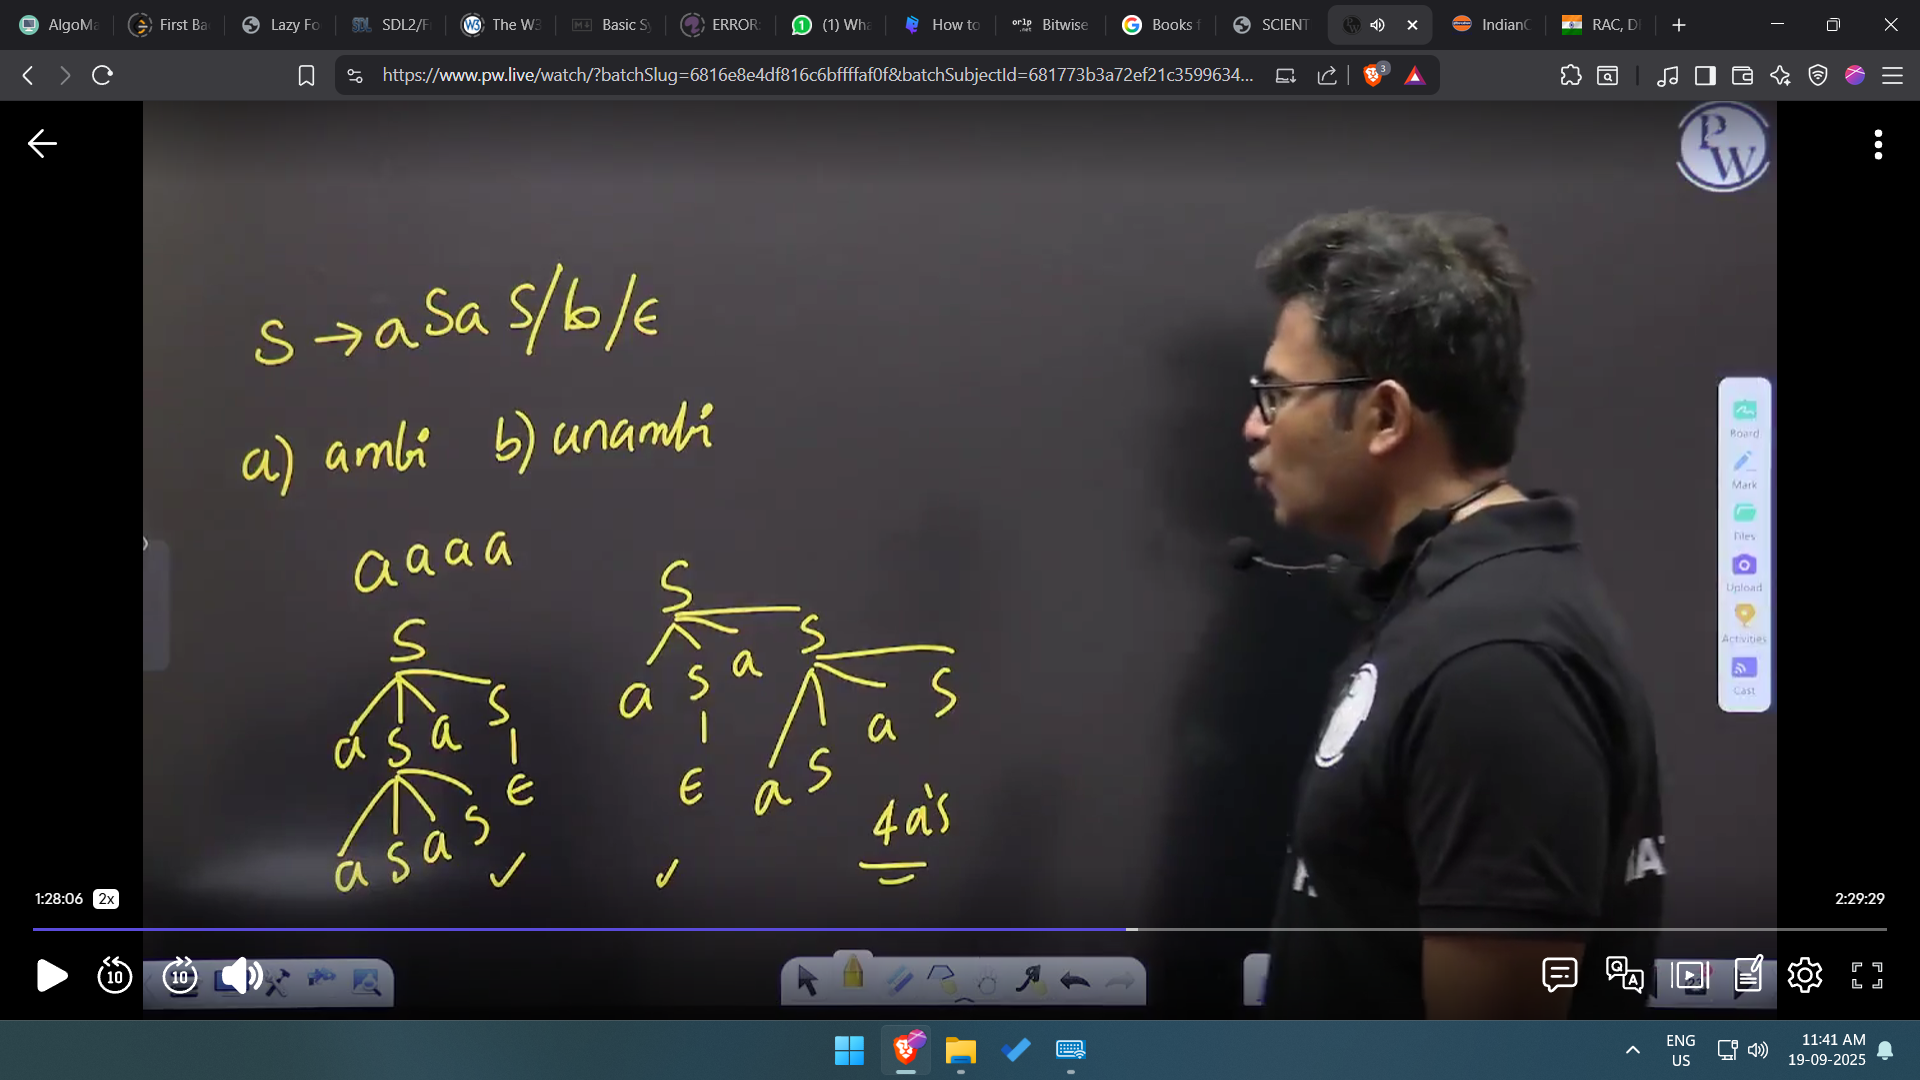 AlgoMa
First Ba
Lazy Fo
SDL2/F
The W3
Basic Sy
ERROR:
(1) Wha
How to
Bitwise
Books f
SCIENT
IndianC
RAC, D
https://www.pw.live/watch/?batchSlug=6816e8e4df816c6bffffaf0f&batchSubjectId=681773b3a72ef21c3599634...
3
PW
S → a S a S / b / ε
a) ambi b) unambi
a a a a
S
a S a S
ε
a S a S
✓
S
a S a S
ε
a S a S
✓
4 a's
Board
Mark
Files
Upload
Activities
Cast
1:28:06 2x
2:29:29
10 10
ENG
US
11:41 AM
19-09-2025